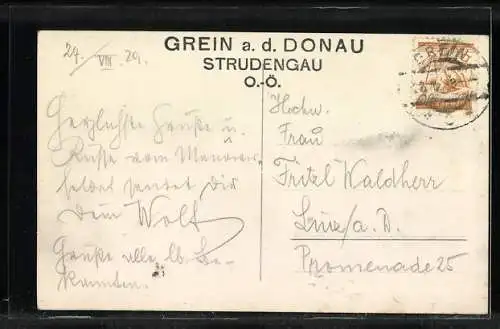 24./VIII. 29.
GREIN a. d. DONAU
STRUDENGAU
O.-Ö.
Herzlichste Grüße u.
Küsse vom Manöver-
felde sendet Dir
Dein Wolf
Grüße alle lb. Be-
kannten.
Hochw.
Frau
Fritzl Waldherr
Linz/a. D.
Promenade 25